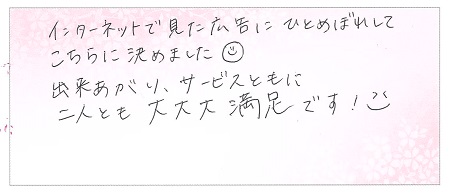 インターネットで見た広告にひとめぼれして
こちらに決めました☺
出来あがり、サービスともに
二人とも大大大満足です！☺